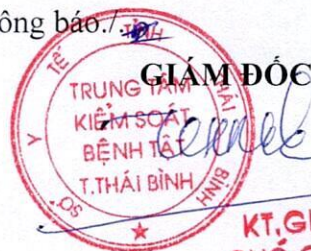 ông báo./.
GIÁM ĐỐC
SỞ Y TẾ TỈNH THÁI BÌNH
TRUNG TÂM
KIỂM SOÁT
BỆNH TẬT
T.THÁI BÌNH
KT.GI